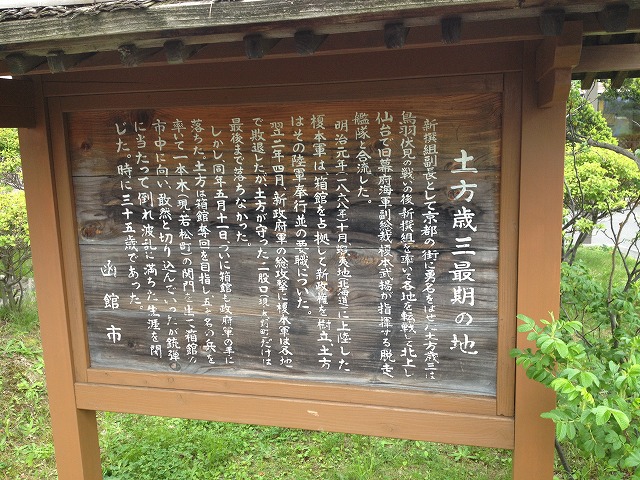 土方歳三最期の地
新撰組副長として京都の街に勇名をはせた土方歳三は
鳥羽伏見の戦いの後新撰組を率いて各地を転戦して北上し
仙台で旧幕府海軍副総裁榎本武揚が指揮する脱走
艦隊と合流した。
明治元年(一八六八年)十月、蝦夷地(北海道)に上陸した
榎本軍は、箱館を占拠して新政権を樹立、土方
はその陸軍奉行並の要職についた。
翌二年四月、新政府軍の総攻撃に榎本軍は各地
で敗退したが土方が守った二股口(現大野町)だけは
最後まで落ちなかった。
しかし、同年五月十一日ついに箱館も政府軍の手に
落ちた。土方は箱館奪回を目指し、五十名の兵を
率いて一本木(現若松町)の関門を出て箱館
市中に向い、敢然と切り込んでいったが銃弾
に当たって倒れ、波乱に満ちた生涯を閉
じた。時に三十五歳であった。
函館市